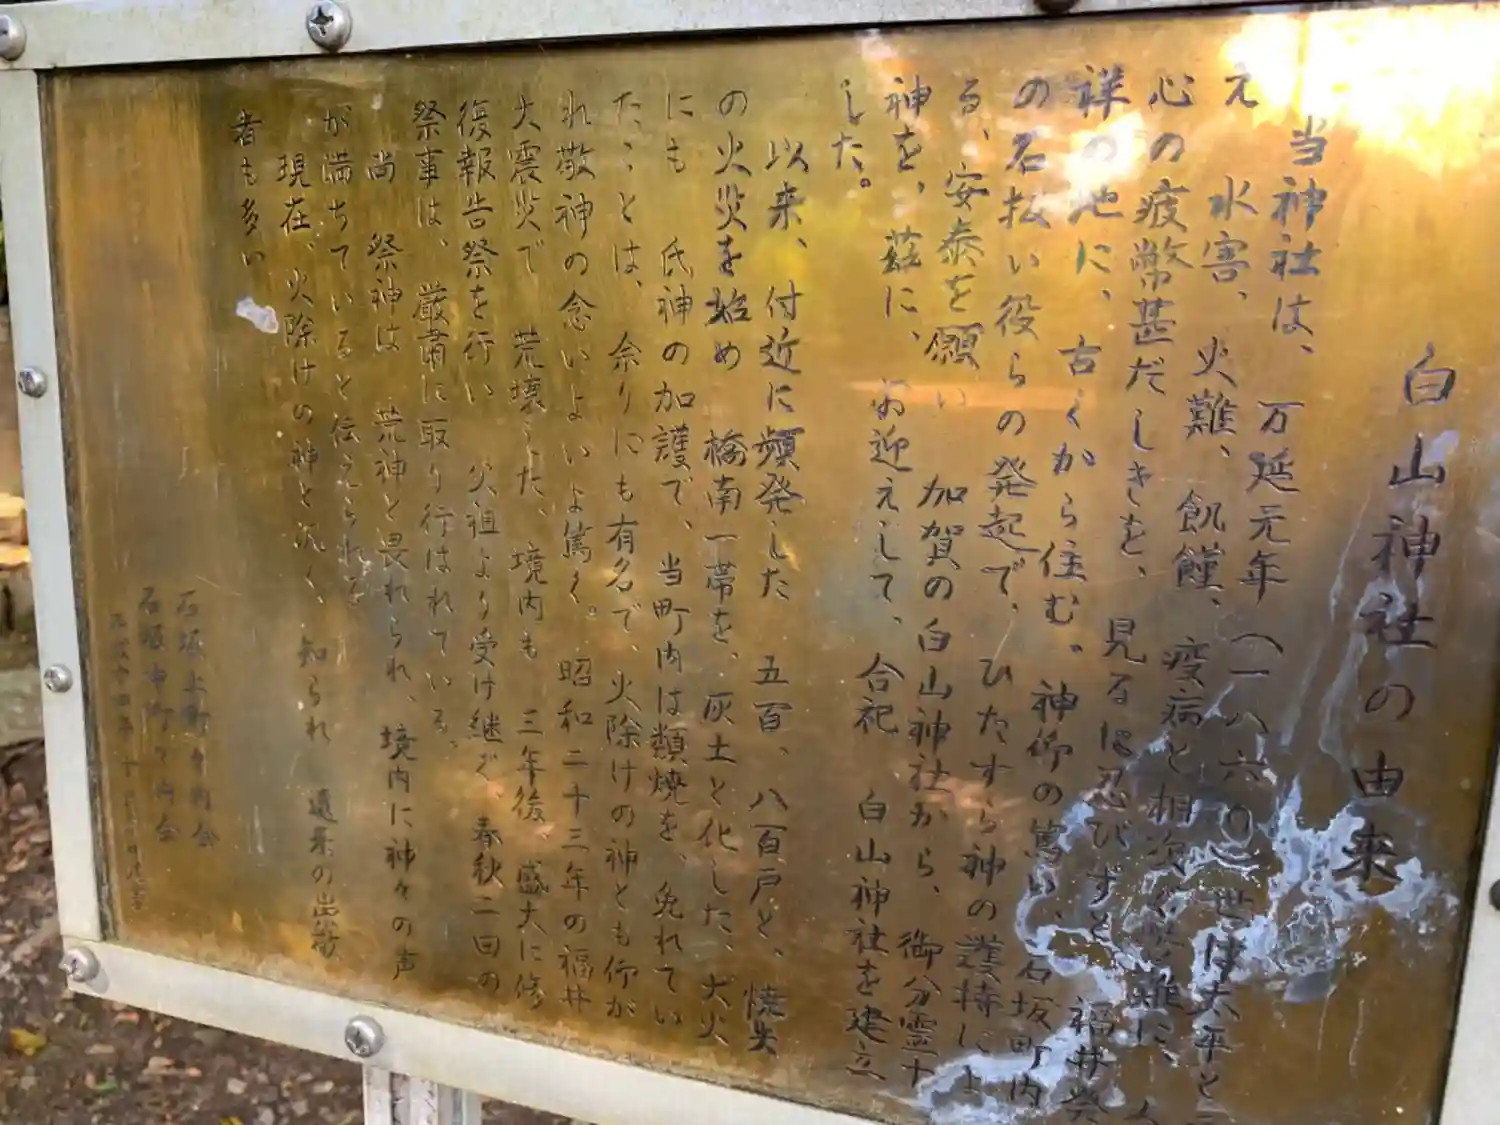 白山神社の由来
当神社は、万延元年(一八六〇)世は太平と
え 水害、火難、飢饉、疫病と相次ぐ災難に、人
心の疲弊甚だしきを、見るに忍びずと、福井発
祥の地に、古くから住む。神御の篤い、石坂町内
の名払い役らの発起で、ひたすら神の護持によ
る、安泰を願い 加賀の白山神社から、御分霊十
神を、茲に、お迎えして、合祀 白山神社を建立
した。
以来、付近に頻発した 五百、八百戸と、焼失
の火災を始め 橋南一帯を、灰土と化した、大火
にも 氏神の加護で、当町内は類焼を、免れてい
たことは、余りにも有名で、火除けの神とも仰が
れ敬神の念いよいよ篤く。昭和二十三年の福井
大震災で 荒壊した、境内も 三年後、盛大に修
復報告祭を行い 父祖より受け継ぐ、春秋二回の
祭事は、厳粛に取り行はれている。
尚 祭神は 荒神と畏れられ、境内に神々の声
が満ちていると伝えられる
現在、火除けの神と広く、知られ 遠来の崇敬
者も多い
石坂上町々内会
石坂中町々内会